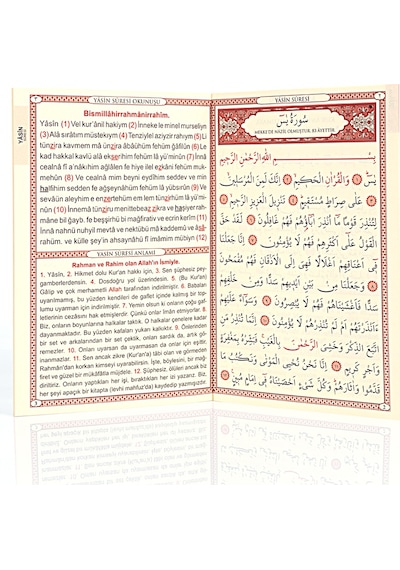 YÂSİN
YÂSİN SÛRESİ OKUNUŞU
Bismillâhirrahmânirrahîm.
Yâsîn (1) Vel kur'ânil hakiym (2) İnneke le minel murseliyn
(3) Alâ sırâtım müstekıym (4) Tenziylel aziyzir rahıym (5) Li
tünzira kavmem mâ ünzira âbâühüm fehüm ğâfilûn (6) Le
kad hakkal kavlü alâ ekserihim fehüm lâ yü'minûn (7) İnnâ
cealnâ fî a'nâkıhim ağlâlen fe hiye ilel ezkâni fehüm muk-
mehûn (8) Ve cealnâ mim beyni eydîhim sedden ve min
halfihim sedden fe ağşeynâhüm fehüm lâ yübsırûn (9) Ve
sevâün aleyhim e enzertehüm em lem tünzirhüm lâ yü'mi-
nûn (10) İnnemâ tünziru menittebeaz zikra ve haşiyer rah-
mâne bil ğayb. fe beşşirhü bi mağfirativ ve ecrin kerîm (11)
İnnâ nahnü nuhyil mevtâ ve nektübü mâ kaddemû ve âsâ-
rahüm. ve külle şey'in ahsaynâhü fî imâmim mübiyn (12)
YÂSİN SÛRESİ ANLAMI
Rahman ve Rahim olan Allah'ın İsmiyle.
1. Yâsîn, 2. Hikmet dolu Kur'an hakkı için, 3. Sen şüphesiz pey-
gamberlerdensin. 4. Dosdoğru yol üzerindesin. 5. (Bu Kur'an)
Gâlip ve çok merhametli Allah tarafından indirilmiştir. 6. Babaları
uyarılmamış, bu yüzden kendileri de gaflet içinde kalmış bir top-
lumu uyarman için indirilmiştir. 7. Yemin olsun ki onların çoğu
cezasını hak etmişlerdir. Çünkü onlar îmân etmiyorlar. 8.
Biz, onların boyunlarına halkalar taktık. O halkalar çenelere kadar
dayanmaktadır. Bu yüzden kafaları yukarı kalkıktır. 9. Önlerinden
bir set ve arkalarından bir set çektik, onları sardık da, artık gö-
remezler. 10. Onları uyarsan da uyarmasan da onlar için eşittir,
inanmazlar. 11. Sen ancak zikre (Kur'an'a) tâbi olan ve görmeden
Rahmân'dan korkan kimseyi uyarabilirsin. İşte, böylesini, bir mağ-
firet ve güzel bir mükâfatla müjdele. 12. Şüphesiz, ölüleri ancak biz
diriltiriz. Onların yaptıkları her işi, bıraktıkları her izi yazarız. Biz,
her şeyi apaçık bir kitapta (levhi mahfuz'da) kaydedip yazmışızdır.
YÂSÎN SÛRESİ
سُورَةُ يٰسٓ
MEKKE'DE NAZİL OLMUŞTUR. 83 ÂYETTİR.
بِسْمِ اللّٰهِ الرَّحْمٰنِ الرَّحِيمِ
يٰسٓ ﴿١﴾ وَالْقُرْاٰنِ الْحَكِيمِ ﴿٢﴾ اِنَّكَ لَمِنَ الْمُرْسَلِينَ
﴿٣﴾ عَلٰى صِرَاطٍ مُسْتَقِيمٍ ﴿٤﴾ تَنْزِيلَ الْعَزِيزِ الرَّحِيمِ ﴿٥﴾
لِتُنْذِرَ قَوْمًا مَا اُنْذِرَ اٰبَاؤُهُمْ فَهُمْ غَافِلُونَ ﴿٦﴾ لَقَدْ حَقَّ
الْقَوْلُ عَلٰى اَكْثَرِهِمْ فَهُمْ لَا يُؤْمِنُونَ ﴿٧﴾ اِنَّا جَعَلْنَا
فِى اَعْنَاقِهِمْ اَغْلَالًا فَهِىَ اِلَى الْاَذْقَانِ فَهُمْ مُقْمَحُونَ
﴿٨﴾ وَجَعَلْنَا مِنْ بَيْنِ اَيْدِيهِمْ سَدًّا وَمِنْ خَلْفِهِمْ
سَدًّا فَاَغْشَيْنَاهُمْ فَهُمْ لَا يُبْصِرُونَ ﴿٩﴾ وَسَوَاءٌ عَلَيْهِمْ
ءَاَنْذَرْتَهُمْ اَمْ لَمْ تُنْذِرْهُمْ لَا يُؤْمِنُونَ ﴿١٠﴾ اِنَّمَا تُنْذِرُ مَنِ
اتَّبَعَ الذِّكْرَ وَخَشِىَ الرَّحْمٰنَ بِالْغَيْبِ فَبَشِّرْهُ بِمَغْفِرَةٍ
وَاَجْرٍ كَرِيمٍ ﴿١١﴾ اِنَّا نَحْنُ نُحْيِى الْمَوْتٰى وَنَكْتُبُ مَا
قَدَّمُوا وَاٰثَارَهُمْ وَكُلَّ شَىْءٍ اَحْصَيْنَاهُ فِى اِمَامٍ مُبِينٍ ﴿١٢﴾